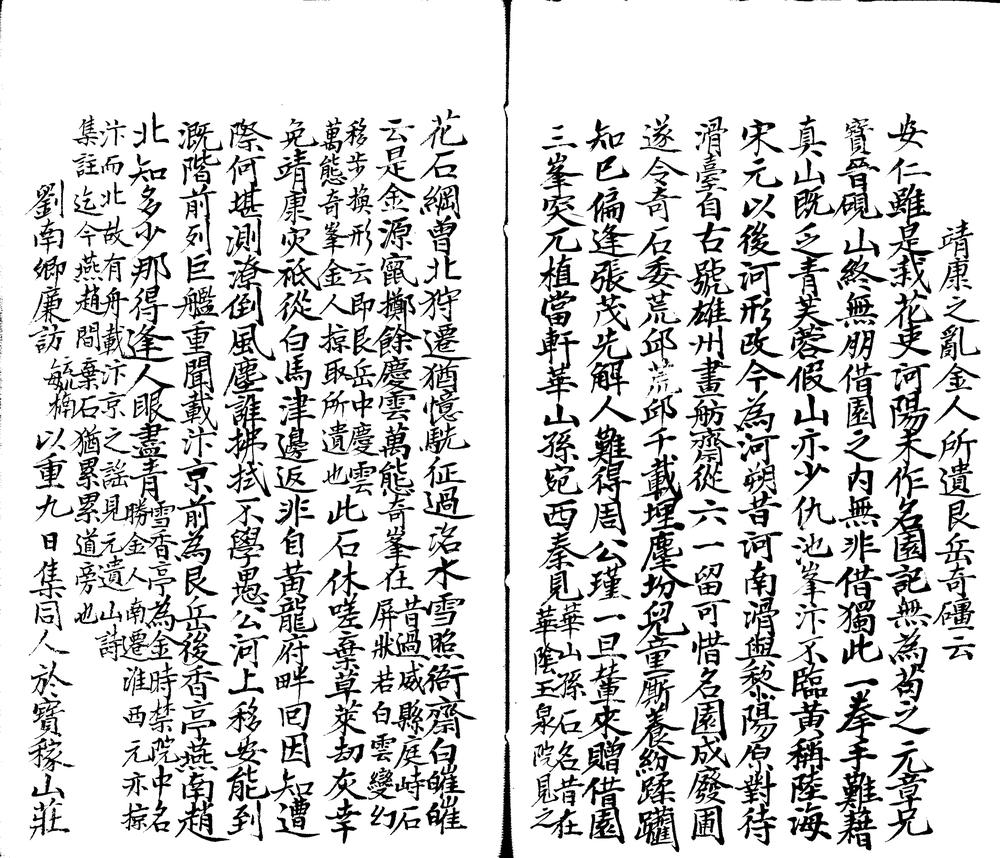 靖康之亂金人所遺艮岳奇礓云
安仁雖是栽花吏河陽未作名園記無為苟之元章兄
寶晉硯山終無朋借園之內無非借獨此一拳手難藉
真山既乏青芙蓉假山亦少仇池峯汴不臨黃稱陸海
宋元以後河形改今為河朔昔河南滑與黎陽原對待
滑臺自古號雄州畫舫齋從六一留可惜名園成廢圃
遂令奇石委荒邱荒邱千載埋塵坋兒童廝養紛蹂躪
知已偏逢張茂先解人難得周公瑾一旦輦來贈借園
三峯突兀植當軒華山孫宛西秦見華山孫石名昔在
華陰玉泉院見之
花石綱曾北狩遷猶憶駪征過洺水雪照衙齋白皠皠
云是金源甯擲餘慶雲萬態奇峯在昔過威縣庭峙石
屏狀若白雲變幻
移步換形云即艮岳中慶雲
萬態奇峯金人掠取所遺也此石休嗟棄草萊劫灰幸
免靖康灾祗從白馬津邊返非自黃龍府畔回因知遭
際何堪測潦倒風塵誰拂拭不學愚公河上移安能到
溉階前列巨艦重聞載汴京前為艮岳後香亭燕南趙
北知多少那得逢人眼盡青雪香亭為金時禁院中名
勝金人南遷淮西元亦掠
汴而北故有舟載汴京之謠見元遺山詩
集註迄今燕趙間棄石猶累累道旁也
劉南卿廉訪毓楠以重九日集同人於寶稼山莊